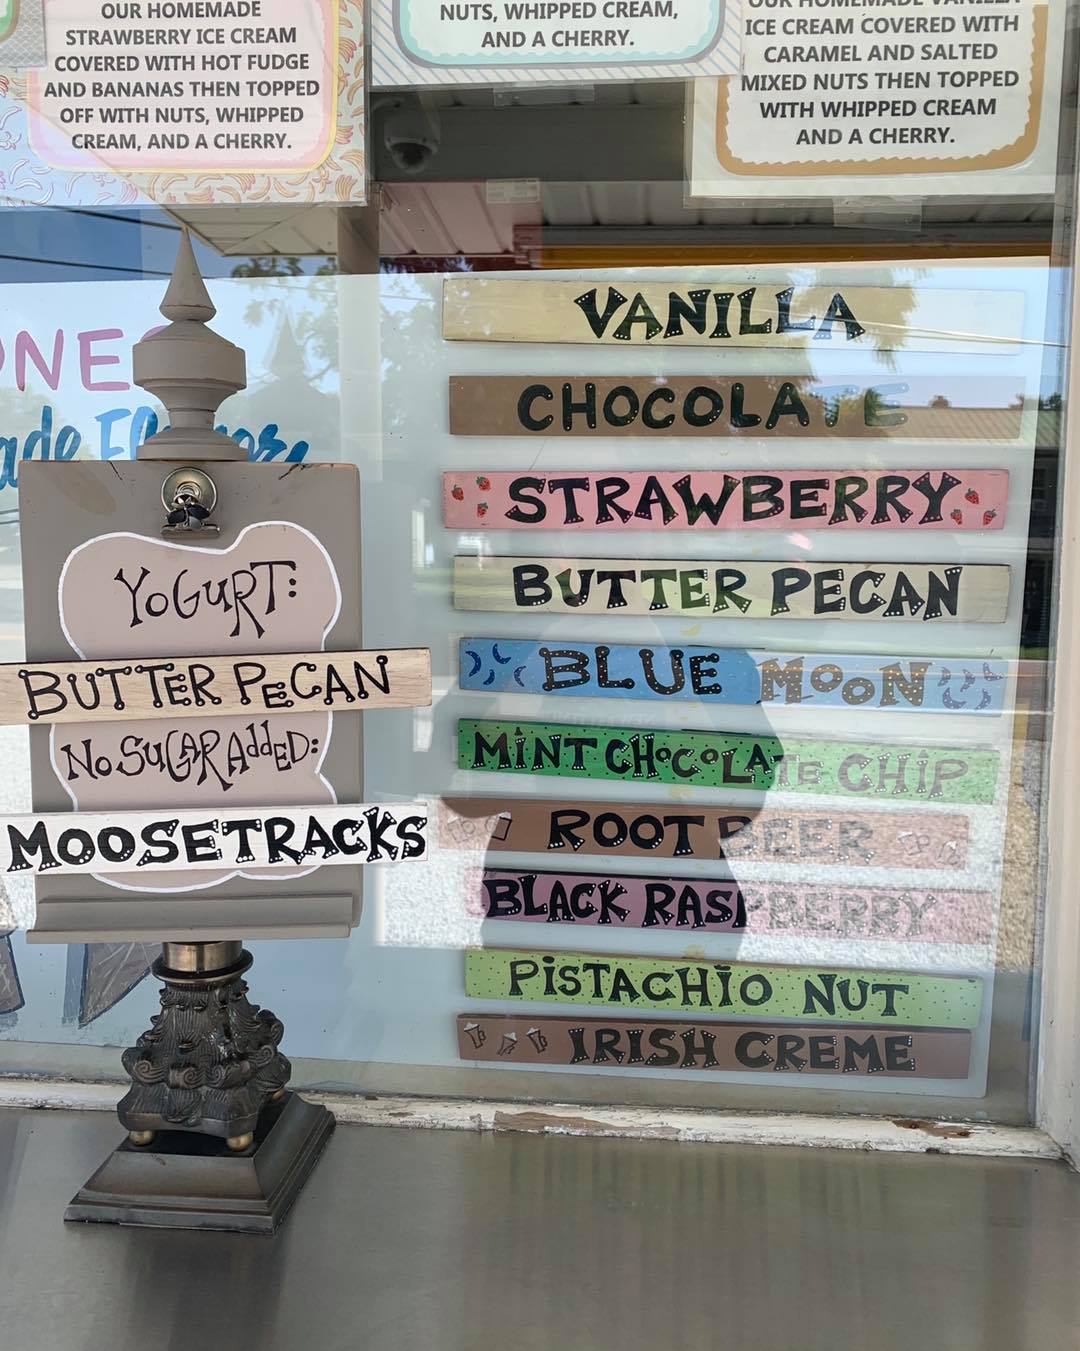 OUR HOMEMADE
STRAWBERRY ICE CREAM
COVERED WITH HOT FUDGE
AND BANANAS THEN TOPPED
OFF WITH NUTS, WHIPPED
CREAM, AND A CHERRY.
NUTS, WHIPPED CREAM,
AND A CHERRY.
OUR HOMEMADE VANILLA
ICE CREAM COVERED WITH
CARAMEL AND SALTED
MIXED NUTS THEN TOPPED
WITH WHIPPED CREAM
AND A CHERRY.
YOGURT:
BUTTER PECAN
NO SUGAR AddED:
MOOSETRACKS
VANILLA
CHOCOLATE
STRAWBERRY
BUTTER PECAN
BLUE MOON
MINT CHOCOLATE CHIP
ROOT BEER
BLACK RASPBERRY
PISTACHIO NUT
IRISH CREME